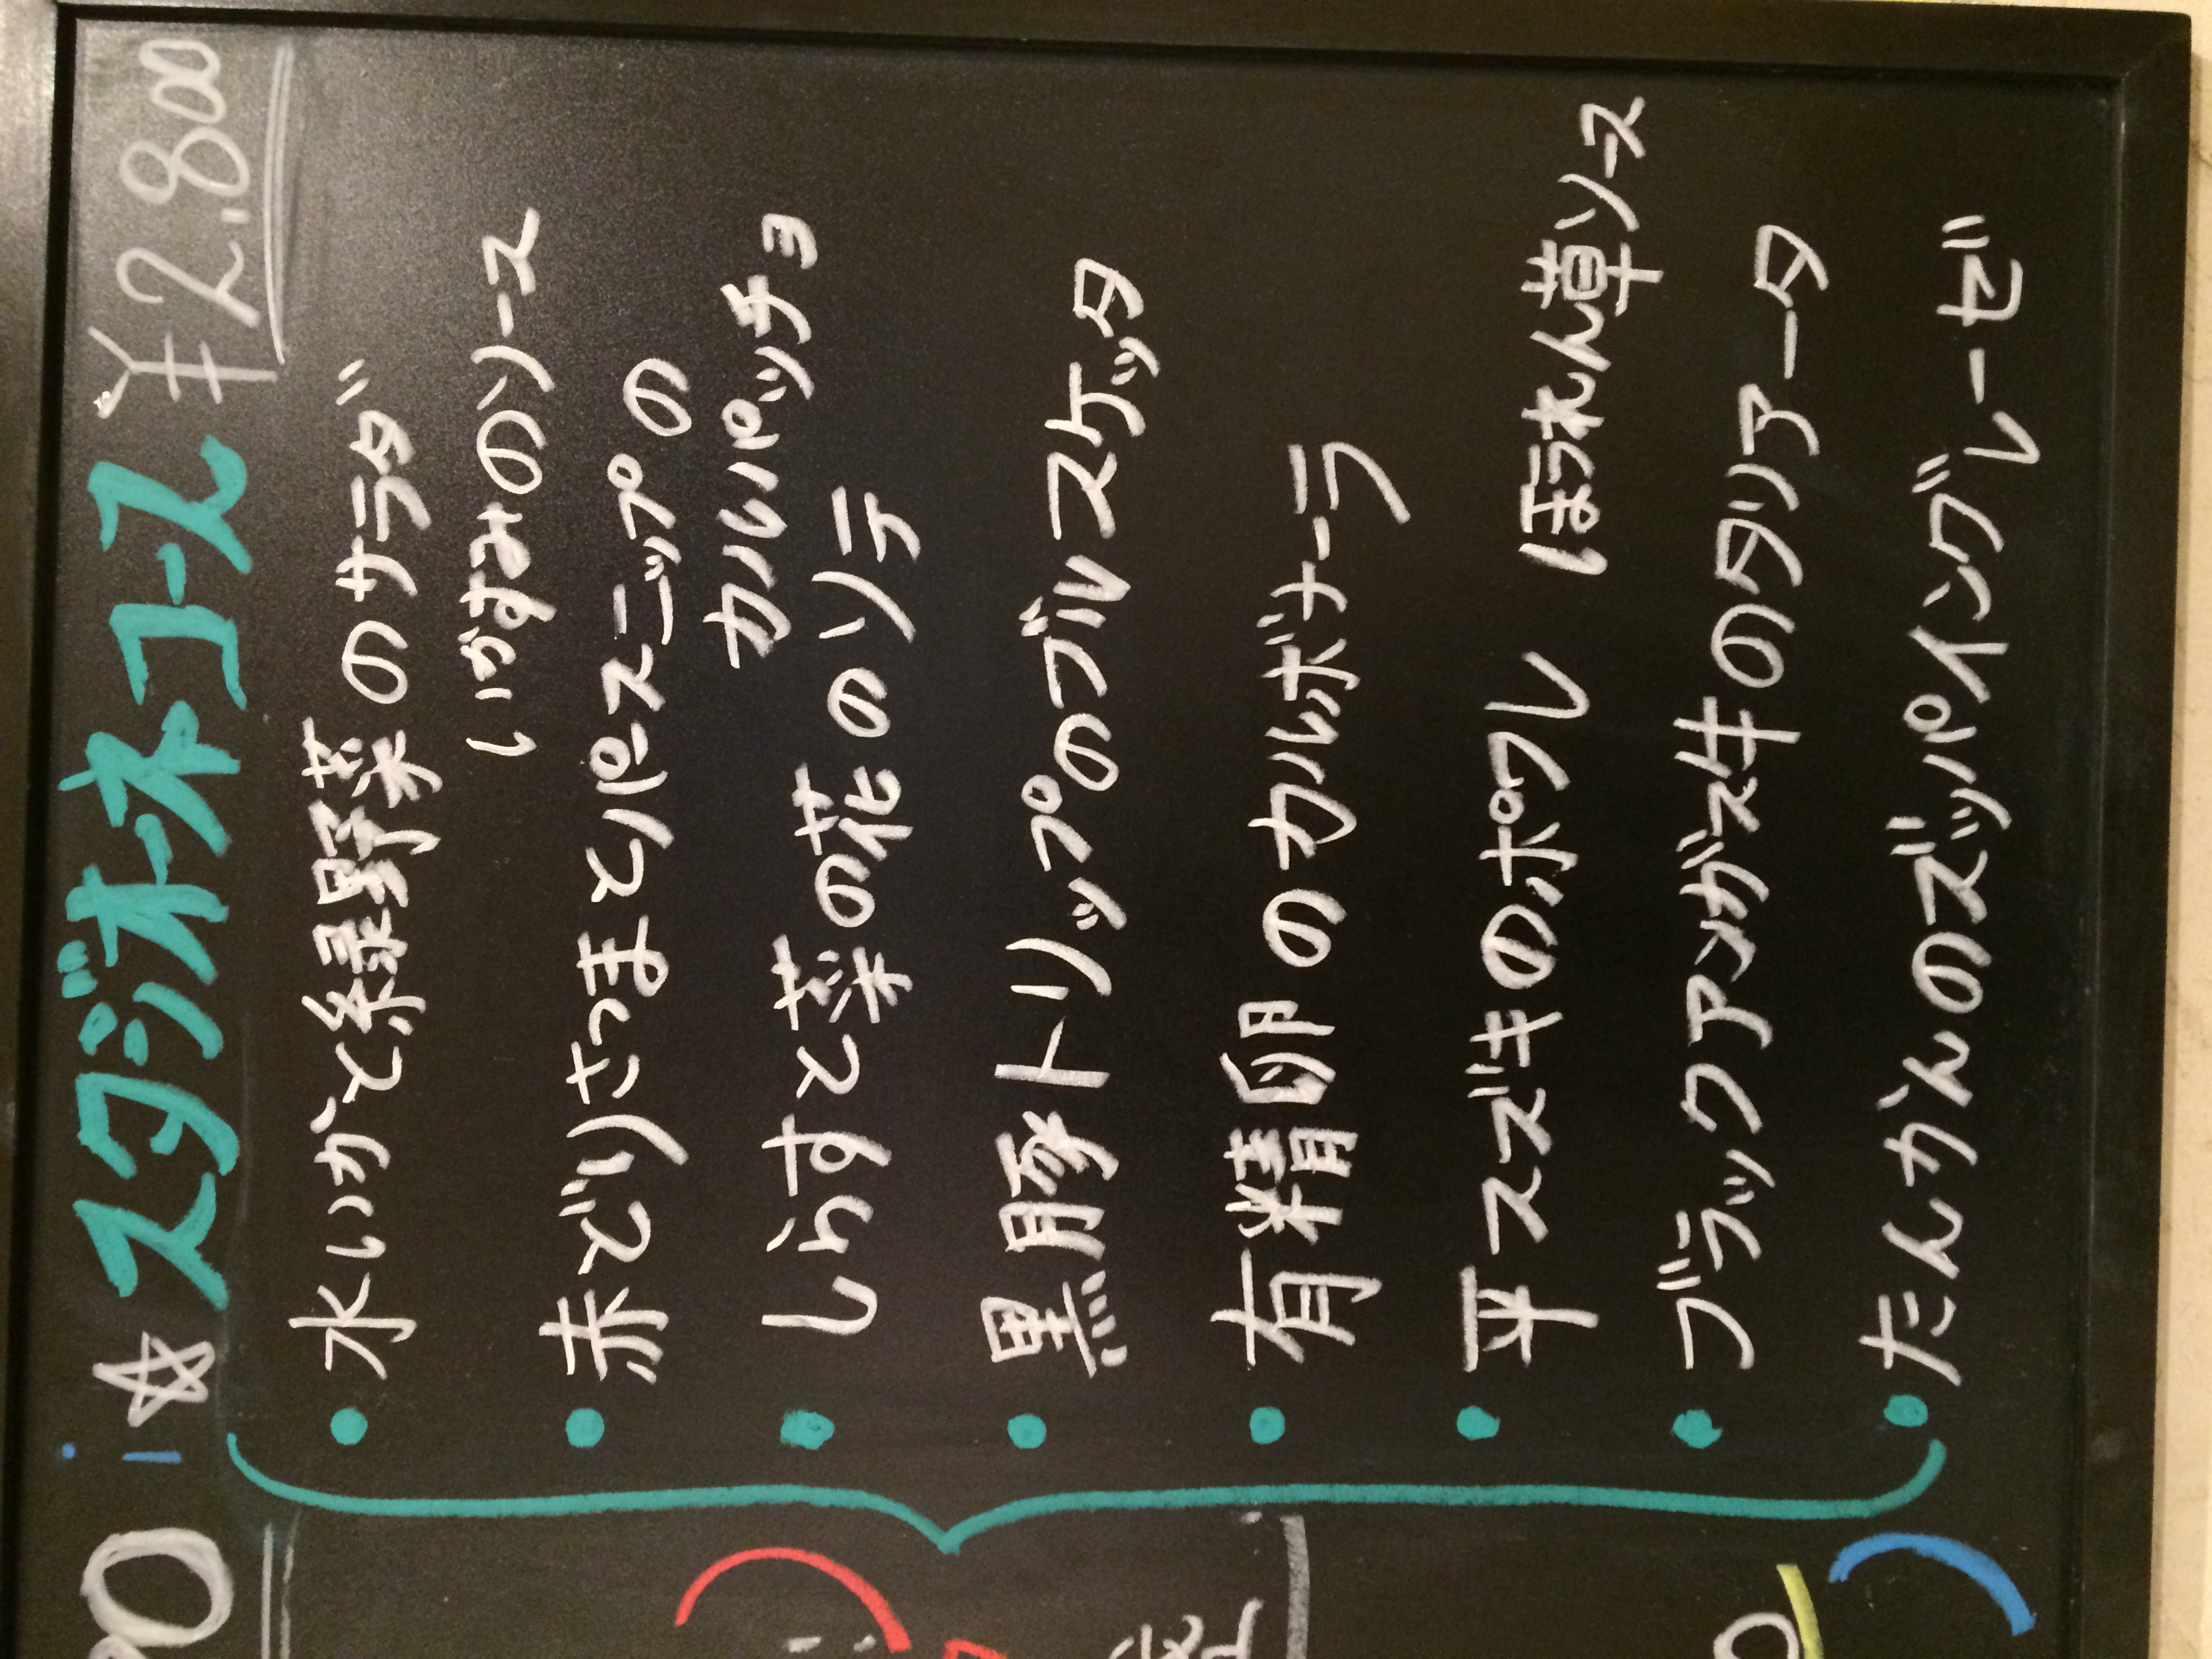 ☆スタジオーネコース ¥2.800
・水いかと緑野菜のサラダ
いかすみのソース
・赤どりさつまとパースニップの
カルパッチョ
・しらすと菜の花のソテ
・黒豚トリップのブルスケッタ
・有精卵のカルボナーラ
・平スズキのポワレ ほうれん草ソース
・ブラックアンガス牛のタリアータ
・たんかんのズッパイングレーゼ